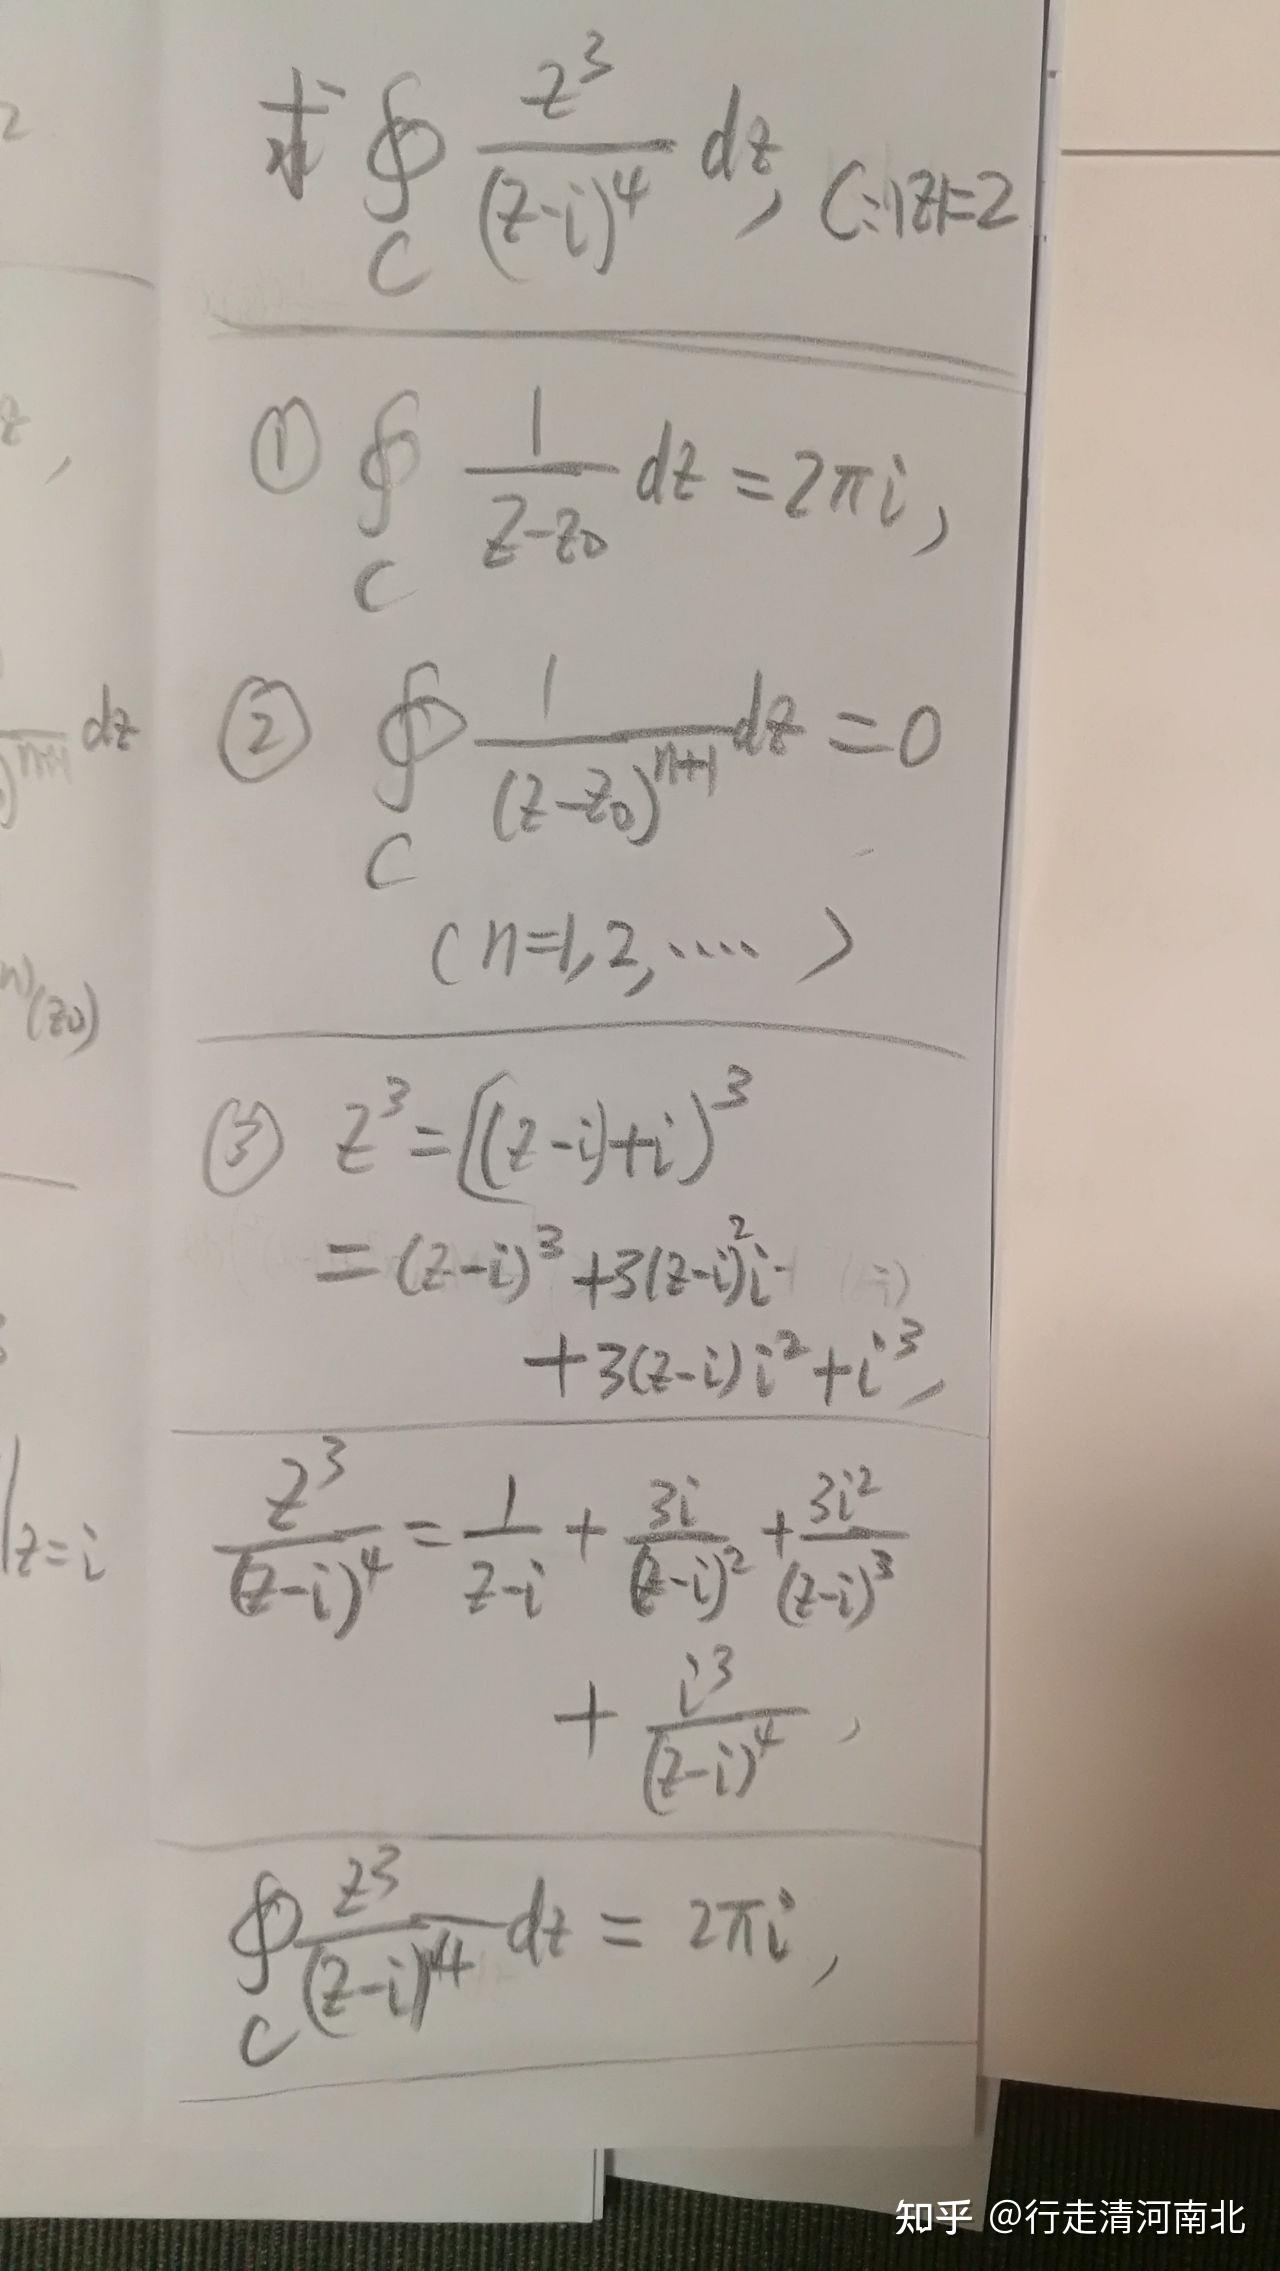 2
z,
dz
n+1
(z₀)
|z=i
求 ∮_C z³/(z-i)⁴ dz, C:|z|=2
① ∮_C 1/(z-z₀) dz = 2πi,
② ∮_C 1/(z-z₀)ⁿ⁺¹ dz = 0
(n=1,2,····)
③ z³=[(z-i)+i)³
=(z-i)³+3(z-i)²i
+3(z-i)i²+i³,
z³/(z-i)⁴ = 1/(z-i) + 3i/(z-i)² + 3i²/(z-i)³
+ i³/(z-i)⁴,
∮_C z³/(z-i)⁴ dz = 2πi,
知乎 @行走清河南北